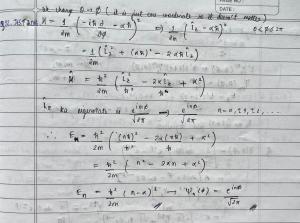 DATE:
We change θ → φ ( it is just our coordinate so it doesn't matter )
H = 1/2m ( -iħ ∂/∂φ - αħ )² ⇒ 1/2m ( L̂z - αħ )² 0 ≤ φ ≤ 2π
= 1/2m ( L̂z² + (αħ)² - 2αħ L̂z )
Ĥ = ħ²/2m ( L̂z²/ħ² - 2α L̂z/ħ + α² )
L̂z eigenstate is e^{inφ}/√2π → e^{inφ}/√2π n = 0, ±1, ±2, ...
∴ En = ħ²/2m ( (nħ)²/ħ² - 2α(nħ)/ħ + α² )
= ħ²/2m ( n² - 2αn + α² )
En = ħ²/2m (n-α)² → Ψn(φ) = e^{inφ}/√2π